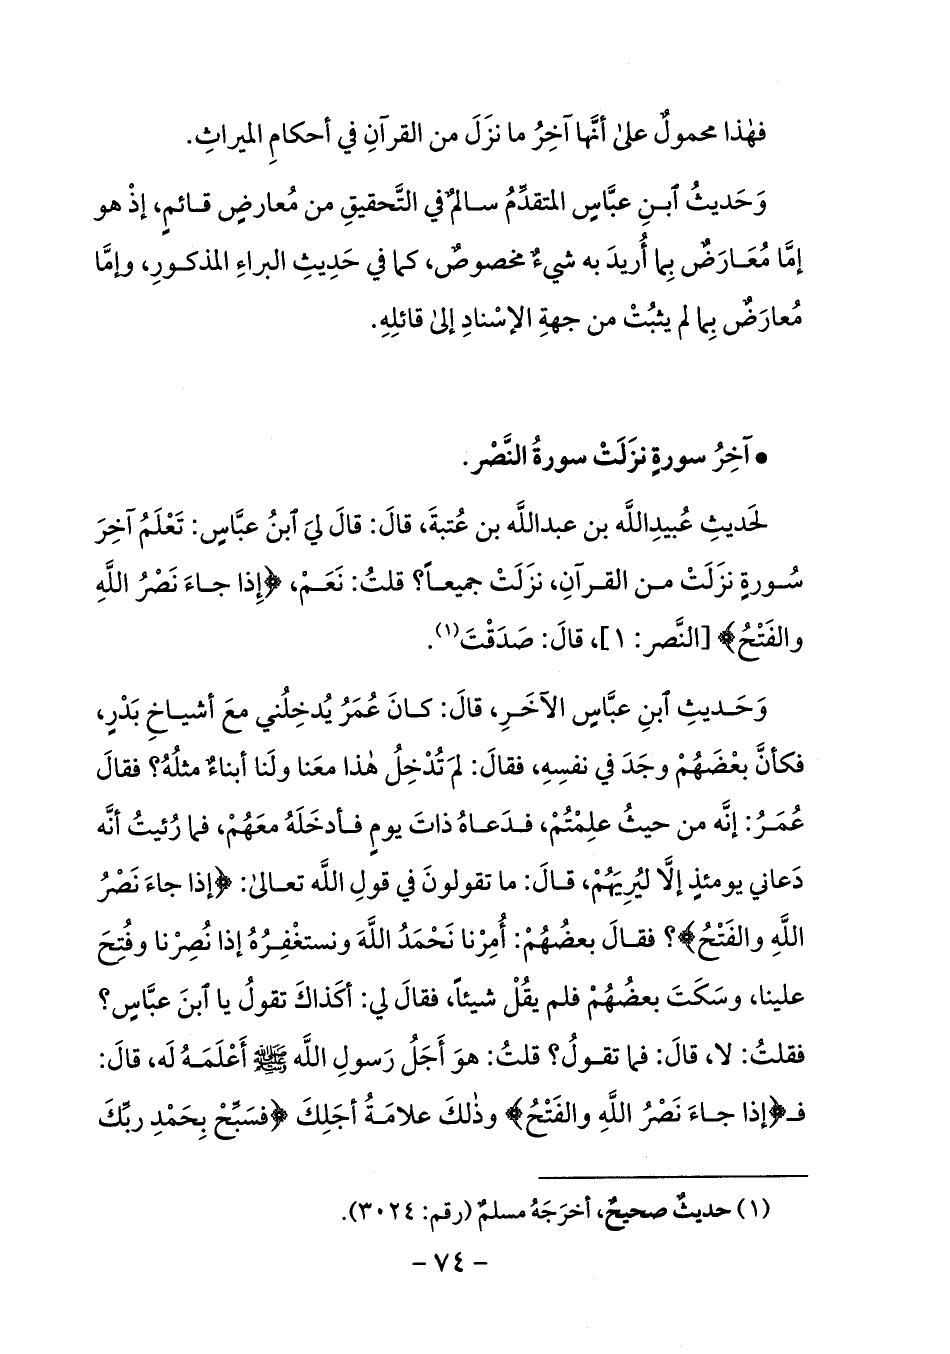 فهٰذا محمولٌ علىٰ أنَّها آخِرُ ما نزَلَ من القرآنِ في أحكامِ الميراثِ.
وَحَديثُ ٱبنِ عبَّاسٍ المتقدِّمُ سالمٌ في التَّحقيقِ من مُعارضٍ قائمٍ، إذْ هو
إمَّا مُعَارَضٌ بِما أُريدَ به شيءٌ مخصوصٌ، كما في حَدِيثِ البراءِ المذكورِ، وإمَّا
مُعارَضٌ بِما لم يثبُتْ من جهةِ الإسْنادِ إلىٰ قائلِهِ.
• آخِرُ سورةٍ نزَلَتْ سورةُ النَّصْر.
لحَديثِ عُبيدِاللَّه بن عبداللَّه بن عُتبةَ، قالَ: قالَ لي ٱبنُ عبَّاسٍ: تَعْلَمُ آخِرَ
سُورةٍ نزَلَتْ من القرآنِ، نزَلَتْ جميعاً؟ قلتُ: نَعَمْ، ﴿إِذا جاءَ نَصْرُ اللَّهِ
والفَتْحُ﴾ [النَّصر: ١]، قالَ: صَدَقْتَ(١).
وَحَديثِ ٱبنِ عبَّاسٍ الآخَرِ، قالَ: كانَ عُمَرُ يُدخِلُني معَ أشياخِ بَدْرٍ،
فكأنَّ بعْضَهُمْ وجَدَ في نفسِهِ، فقالَ: لمَ تُدْخِلُ هٰذا معَنا ولَنا أبناءٌ مثلُهُ؟ فقالَ
عُمَرُ: إنَّه من حيثُ علِمْتُمْ، فدَعاهُ ذاتَ يومٍ فأدخَلَهُ معَهُمْ، فما رُئيتُ أنَّه
دَعاني يومئذٍ إلَّا ليُرِيَهُمْ، قالَ: ما تقولونَ في قولِ اللَّه تعالىٰ: ﴿إذا جاءَ نَصْرُ
اللَّهِ والفَتْحُ﴾؟ فقالَ بعضُهُمْ: أُمِرْنا نَحْمَدُ اللَّهَ ونستغْفِرُهُ إذا نُصِرْنا وفُتِحَ
علينا، وسَكَتَ بعضُهُمْ فلم يقُلْ شيئاً، فقالَ لي: أكَذاكَ تقولُ يا ٱبنَ عبَّاسٍ؟
فقلتُ: لا، قالَ: فما تقولُ؟ قلتُ: هوَ أَجَلُ رَسولِ اللَّه ﷺ أَعْلَمَهُ لَه، قالَ:
فـ﴿إذا جاءَ نَصْرُ اللَّهِ والفَتْحُ﴾ وذٰلكَ علامَةُ أجَلِكَ ﴿فسَبِّحْ بِحَمْدِ ربِّكَ
(١) حديثٌ صحيحٌ، أخرَجَهُ مسلمٌ (رقم: ٣٠٢٤).
- ٧٤ -